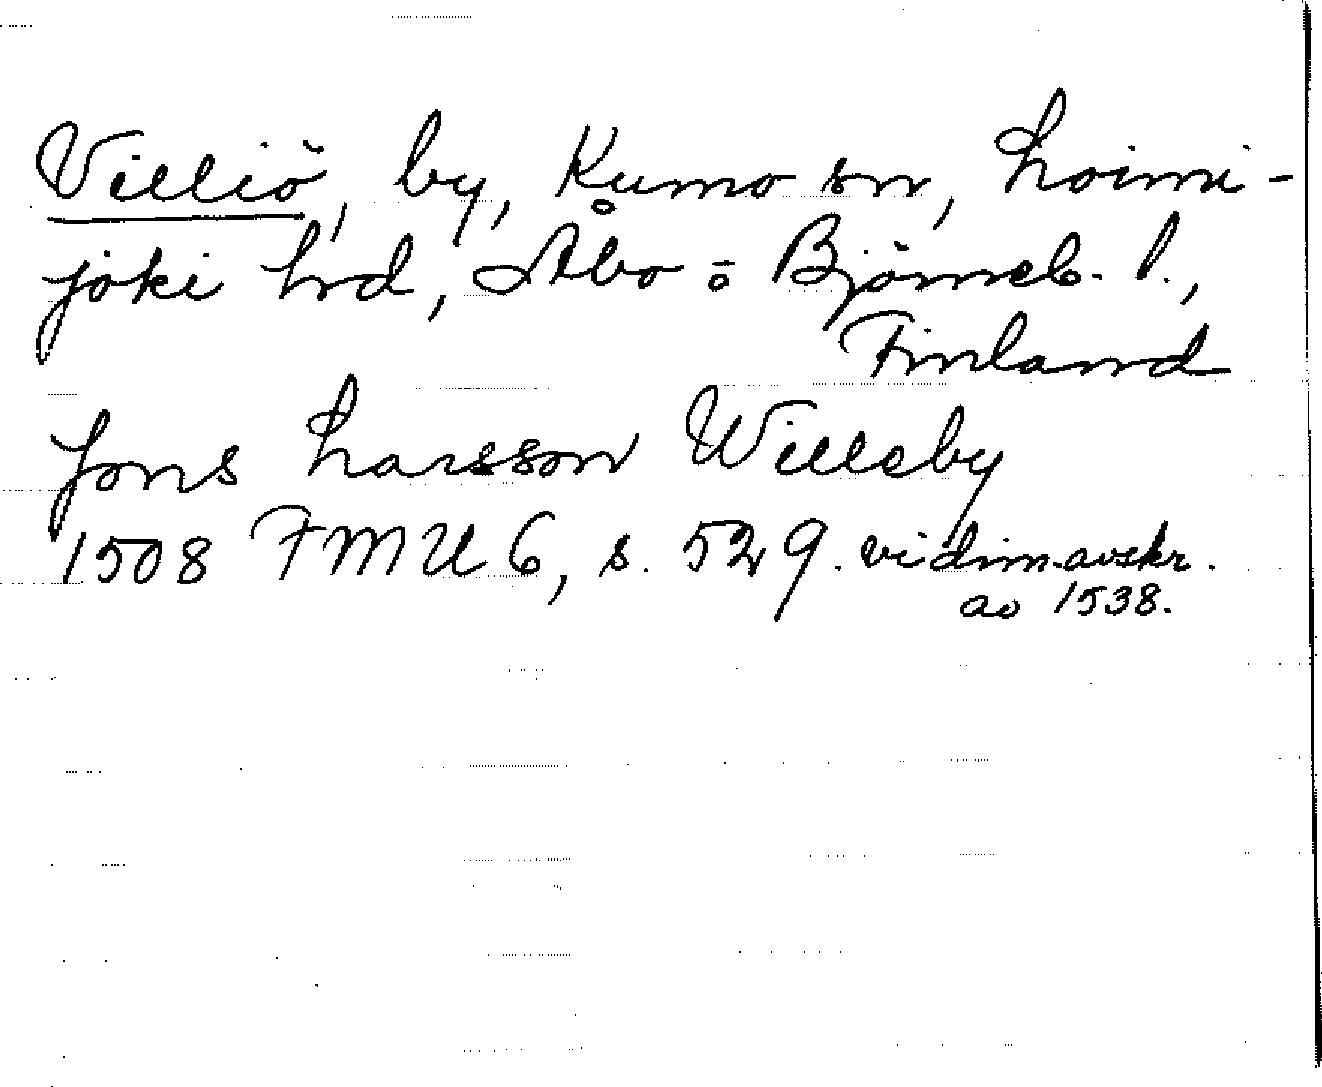 Villiö, by, Kumo sn, Loimi-
joki hrd, Åbo o Björneb. l.,
Finland
Jons Larsson Willeby
1508 FMU 6, s. 529. vidim.avskr.
ao 1538.